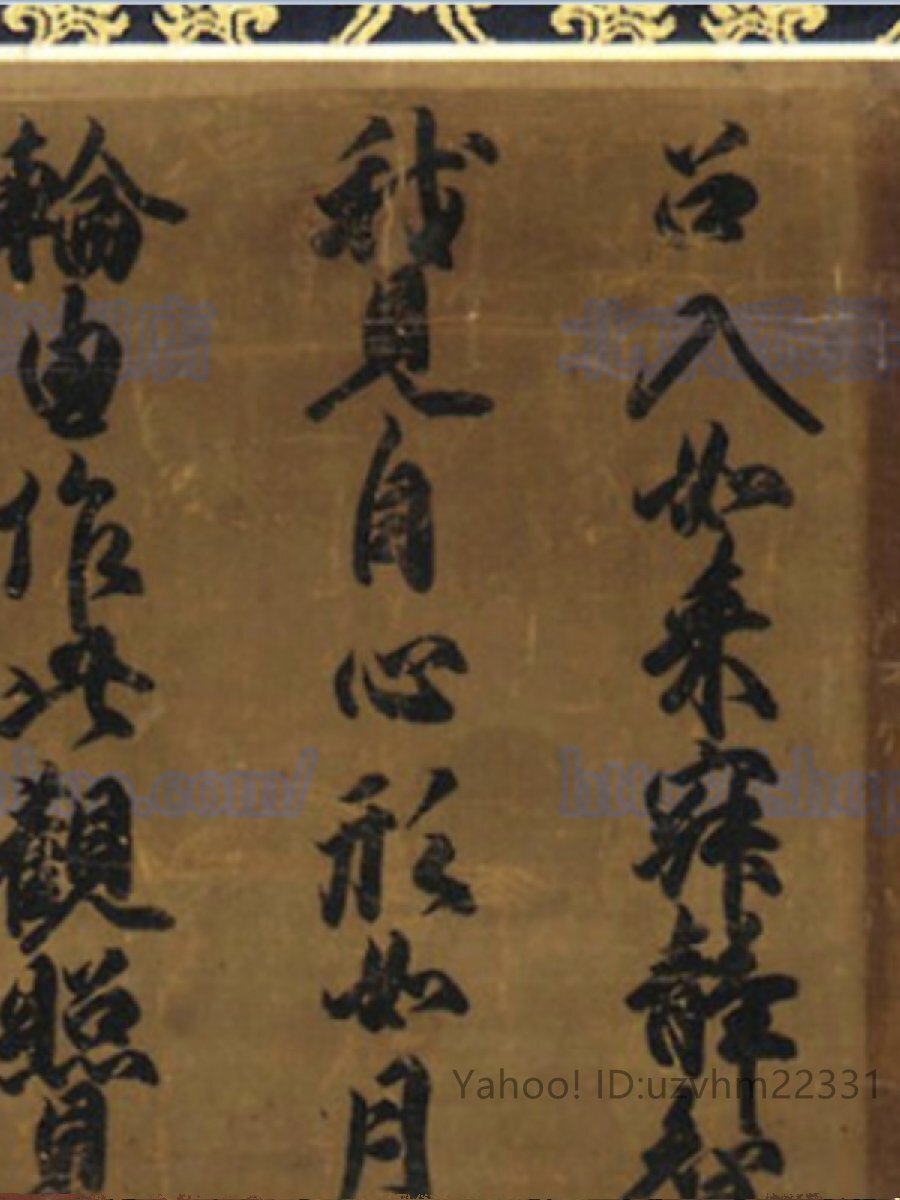 召入如来寂静智
我見自心形如月
輪由作此觀照見
Yahoo! ID:uzvhm22331